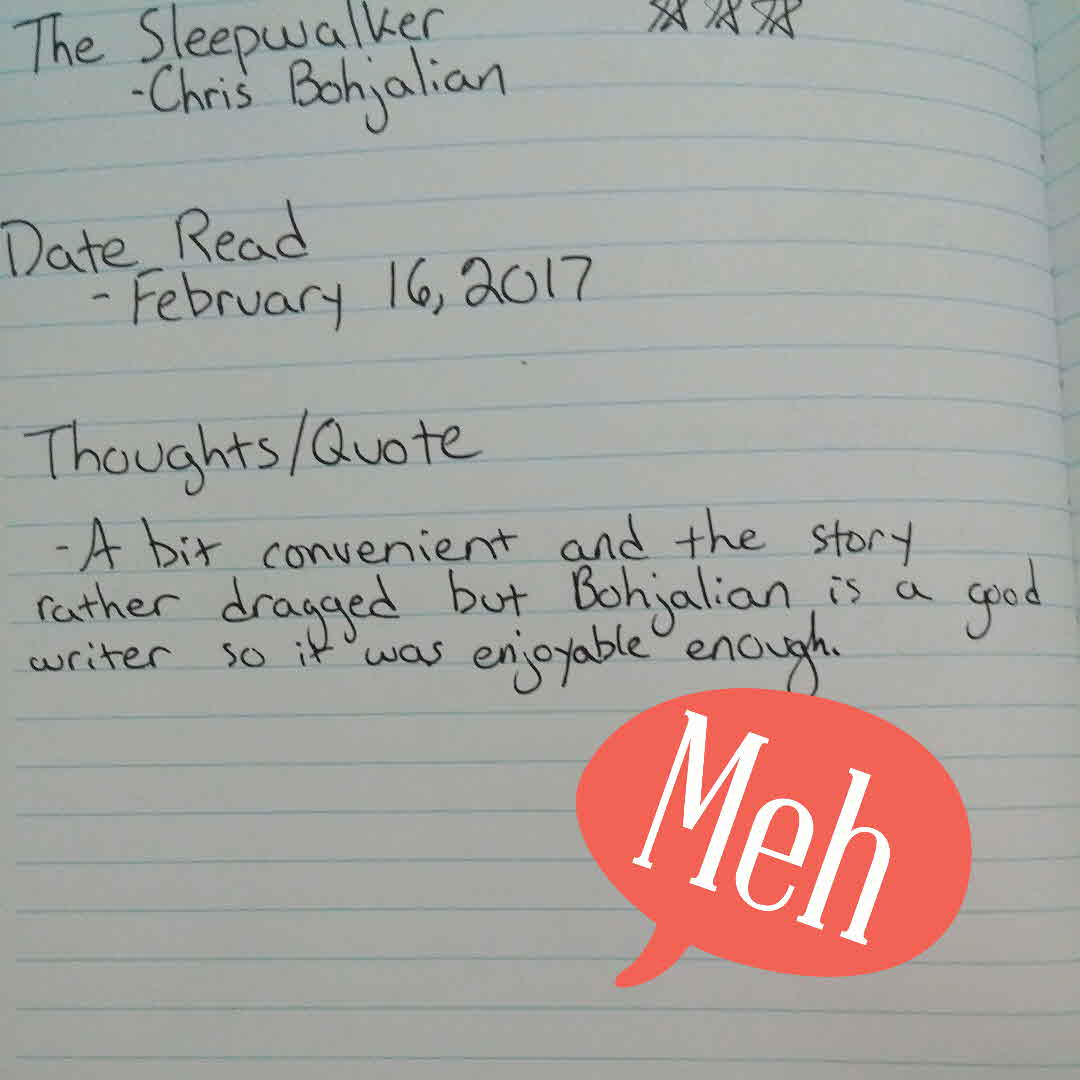 The Sleepwalker
-Chris Bohjalian
Date Read
- February 16, 2017
Thoughts/Quote
- A bit convenient and the story
rather dragged but Bohjalian is a good
writer so it was enjoyable enough.
Meh